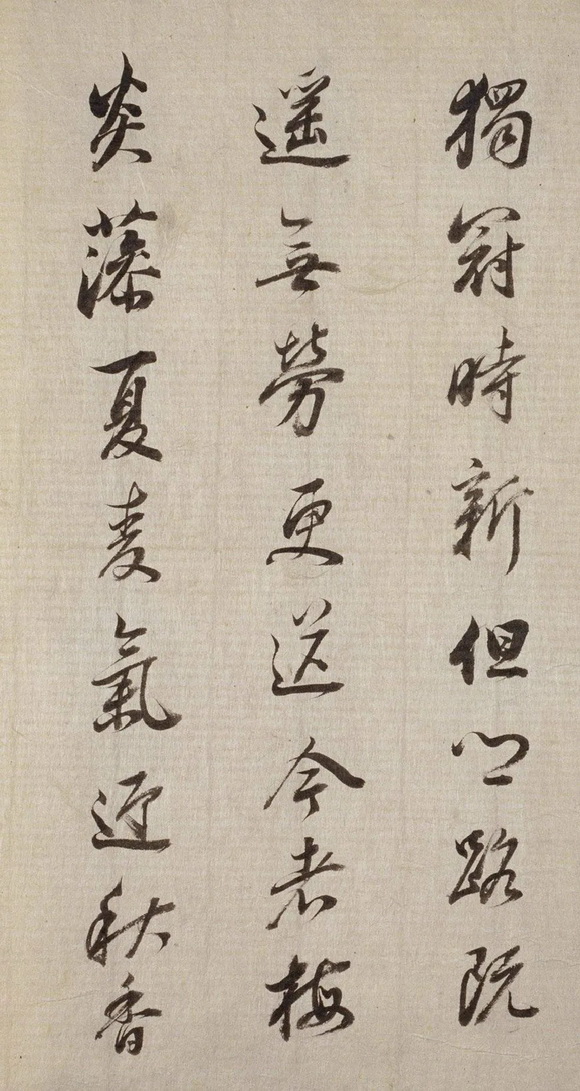 獨冠時新但以路既
遥無勞更送今者梅
炎藻夏麦氣迎秋香